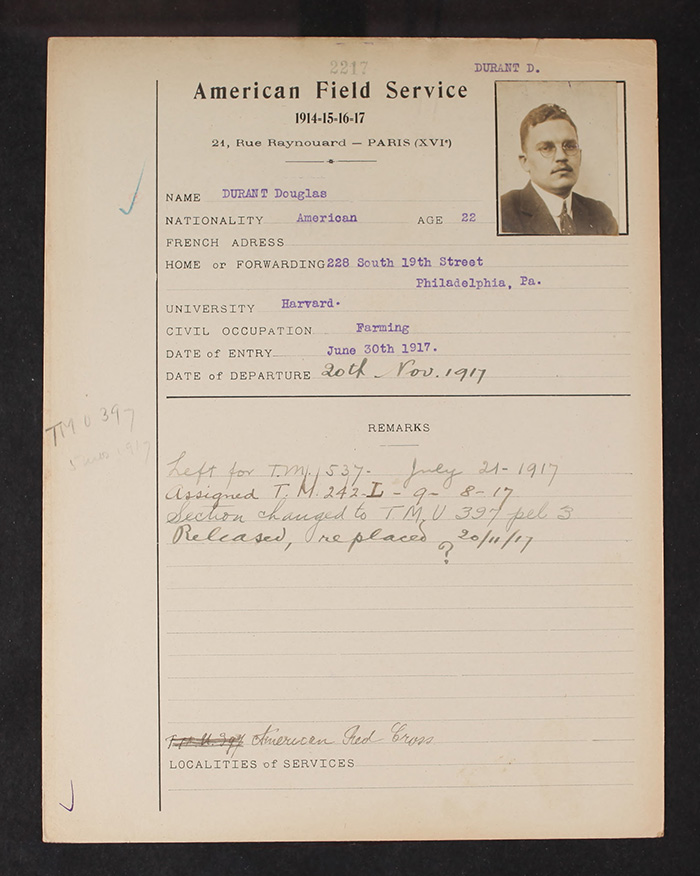 2217
DURANT D.
American Field Service
1914-15-16-17
21, Rue Raynouard — PARIS (XVIe)
NAME DURANT Douglas
NATIONALITY American AGE 22
FRENCH ADRESS
HOME or FORWARDING 228 South 19th Street
Philadelphia, Pa.
UNIVERSITY Harvard.
CIVIL OCCUPATION Farming
DATE of ENTRY June 30th 1917.
DATE of DEPARTURE 20th Nov. 1917
REMARKS
TMU 397
1917
Left for T.M. 537- July 21-1917
Assigned T.M. 242-I-9-8-17
Section changed to T M U 397 pel 3
Released, replaced ? 20/11/17
American Red Cross
LOCALITIES of SERVICES